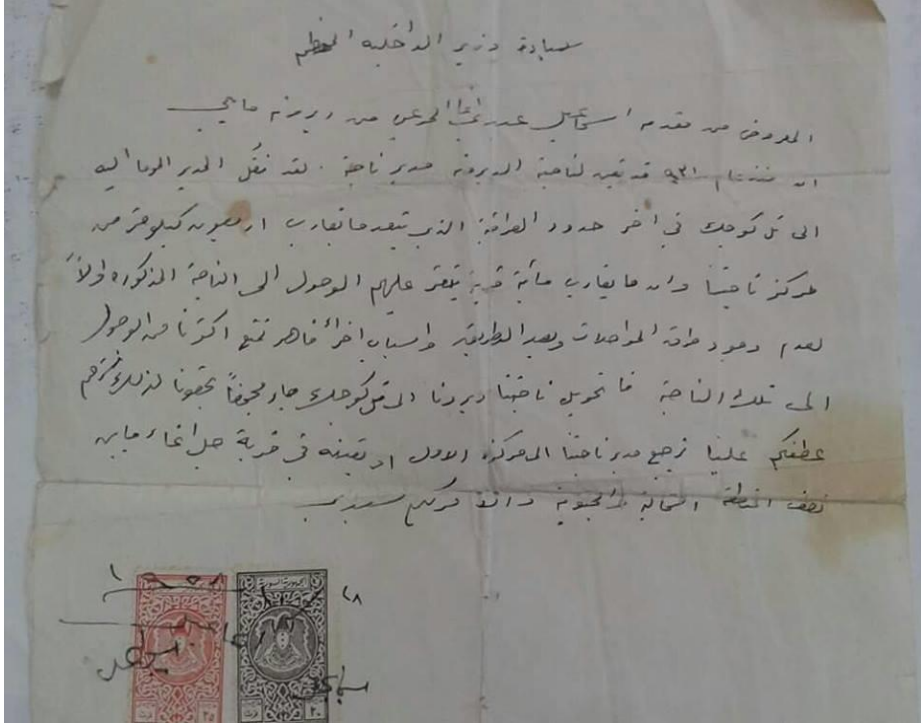 سيادة وزير الداخلية المعظم
المعروض من مقدمه اسماعيل المرعي من ديرونه
ان قد تعين لناحية الديرونه مدير ناحية . لقد نقل المدير الموما اليه
الى تل كوجك في اخر حدود العراقية الذي تبعد ما تقارب اربعون كيلومتر من
مركز ناحيتنا وان ما يقارب مأية قرية يتعثر عليهم الوصول الى الناحية المذكوره اولاً
لعدم وجود طرق المواصلات وبعد الطريق واسباب اخرا تمنع اكثرنا من الوصول
الى تلك الناحية فا تحويل ناحيتنا ديرونا الى تل كوجك جاء مجحفاً بحقونا لذلك
عطفكم علينا ترجع مدير ناحيتنا الى مركزه الاول او تعينه في قرية جل اغا ما بين
نصف المنطقة الشمالية والجنوبية سيدي
٢٥
٢٠